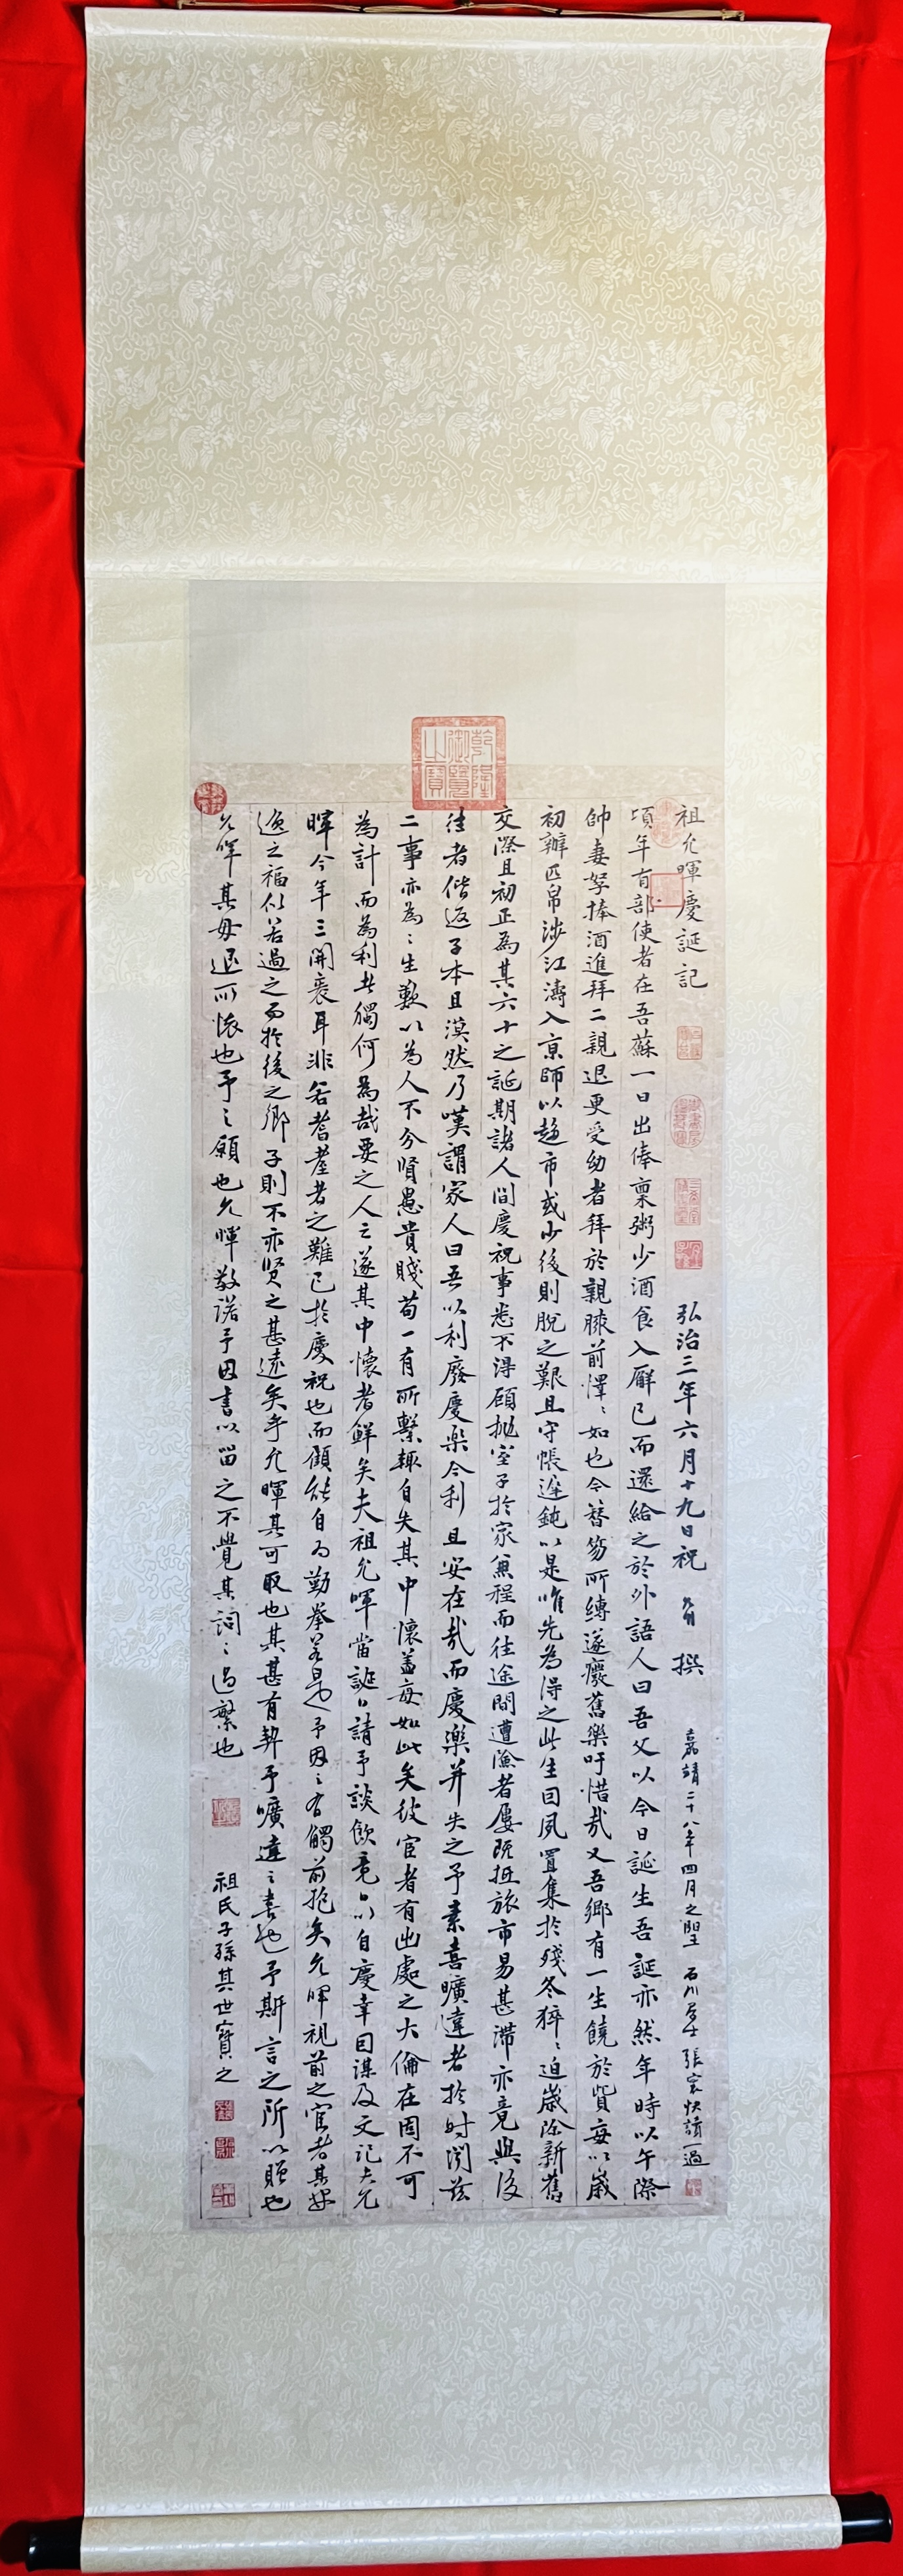 乾隆御覽之寶
祖允暉慶誕記
弘治三年六月十九日祝 撰
嘉靖二十八年四月之望 石川居士張寰快讀一過
頃年有部使者在吾蘇一日出俸稟粥少酒食入廨已而還給之於外語人曰吾父以今日誕生吾誕亦然年時以午際
帥妻孥捧酒進拜二親退更受幼者拜於親膝前懌〻如也今簪笏所縛遂癈舊樂吁惜哉又吾鄉有一生饒於貲每以歲
初辦匹帛涉江濤入京師以趍市或少後則脫之艱且守帳遲鈍以是唯先為得之此生因夙置集於殘冬猝〻迫歲除新舊
交際且初正為其六十之誕期諸人間慶祝事悉不得顧拋室子於家兼程而往途間遭濟者屢既抵旅市易甚滯亦竟與後
往者偕返子本且漠然乃嘆謂家人曰吾以利廢慶樂今利且安在哉而慶樂并失之予素喜曠達者於時閱茲
二事亦為〻生歎以為人不分賢愚貴賤苟一有所繫輒自失其中懷蓋每如此矣彼宦者有出處之大倫在固不可
為計而為利者獨何為哉要之人之遂其中懷者鮮矣夫祖允暉當誕日請予談飲竟日以自慶幸因謀及文記夫允
暉今年三開袠耳非若耆耋者之難已於慶祝也而顧能自為勤拳若是予因〻有觸前抱矣允暉視前之宦者其安
逸之福似若過之而於後之鄉子則不亦賢之甚遠矣乎允暉其可取也其甚有契予曠達〻喜也予斯言之所以贈也
允暉其毋退所懷也予〻願也允暉敬諾予因書以留之不覺其詞〻過繁也
祖氏子孫其世寶之